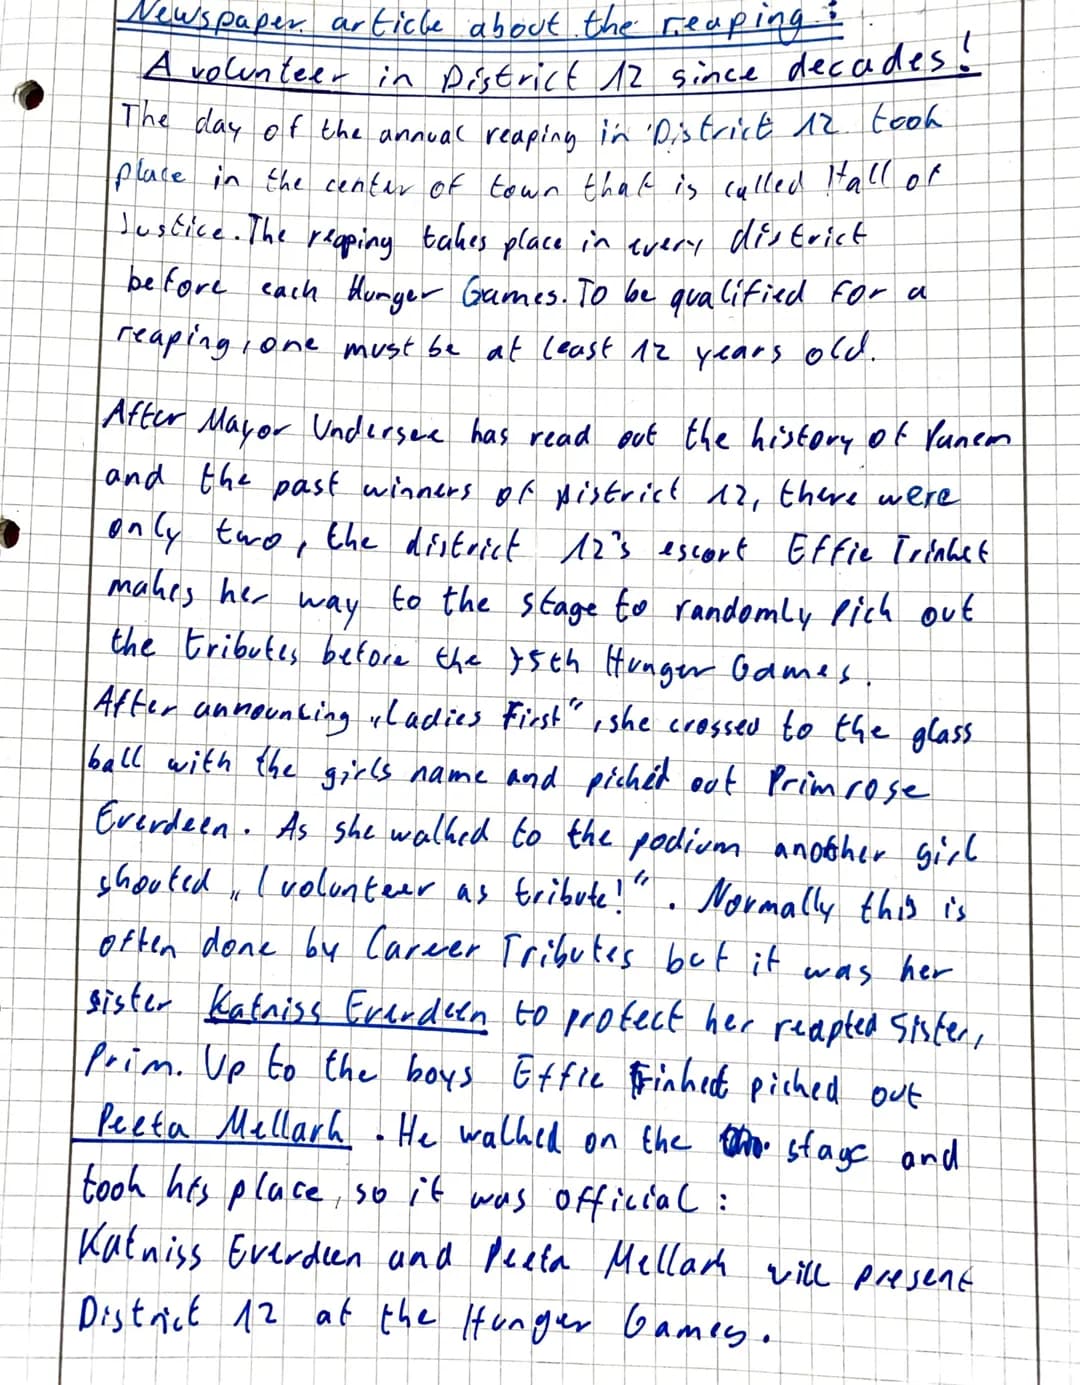 Newspaper article about the reaping:
A volunteer in District 12 since decades!
The day of the annual reaping in District 12 took
place in the center of town that is called Hall of
Justice. The reaping takes place in every district
before each Hunger Games. To be qualified for a
reaping, one must be at least 12 years old.
After Mayor Undersee has read out the history of Panem
and the past winners of District 12, there were
only two, the district 12's escort Effie Trinket
makes her way to the stage to randomly pick out
the tributes before the 75th Hunger Games.
After announcing „Ladies First“, she crossed to the glass
ball with the girls name and picked out Primrose
Everdeen. As she walked to the podium another girl
shouted „I volunteer as tribute!“. Normally this is
often done by Career Tributes but it was her
sister Katniss Everdeen to protect her reapted Sister,
Prim. Up to the boys Effie Trinket picked out
Peeta Mellark. He walked on the stage and
took his place, so it was official:
Katniss Everdeen and Peeta Mellark will present
District 12 at the Hunger Games.